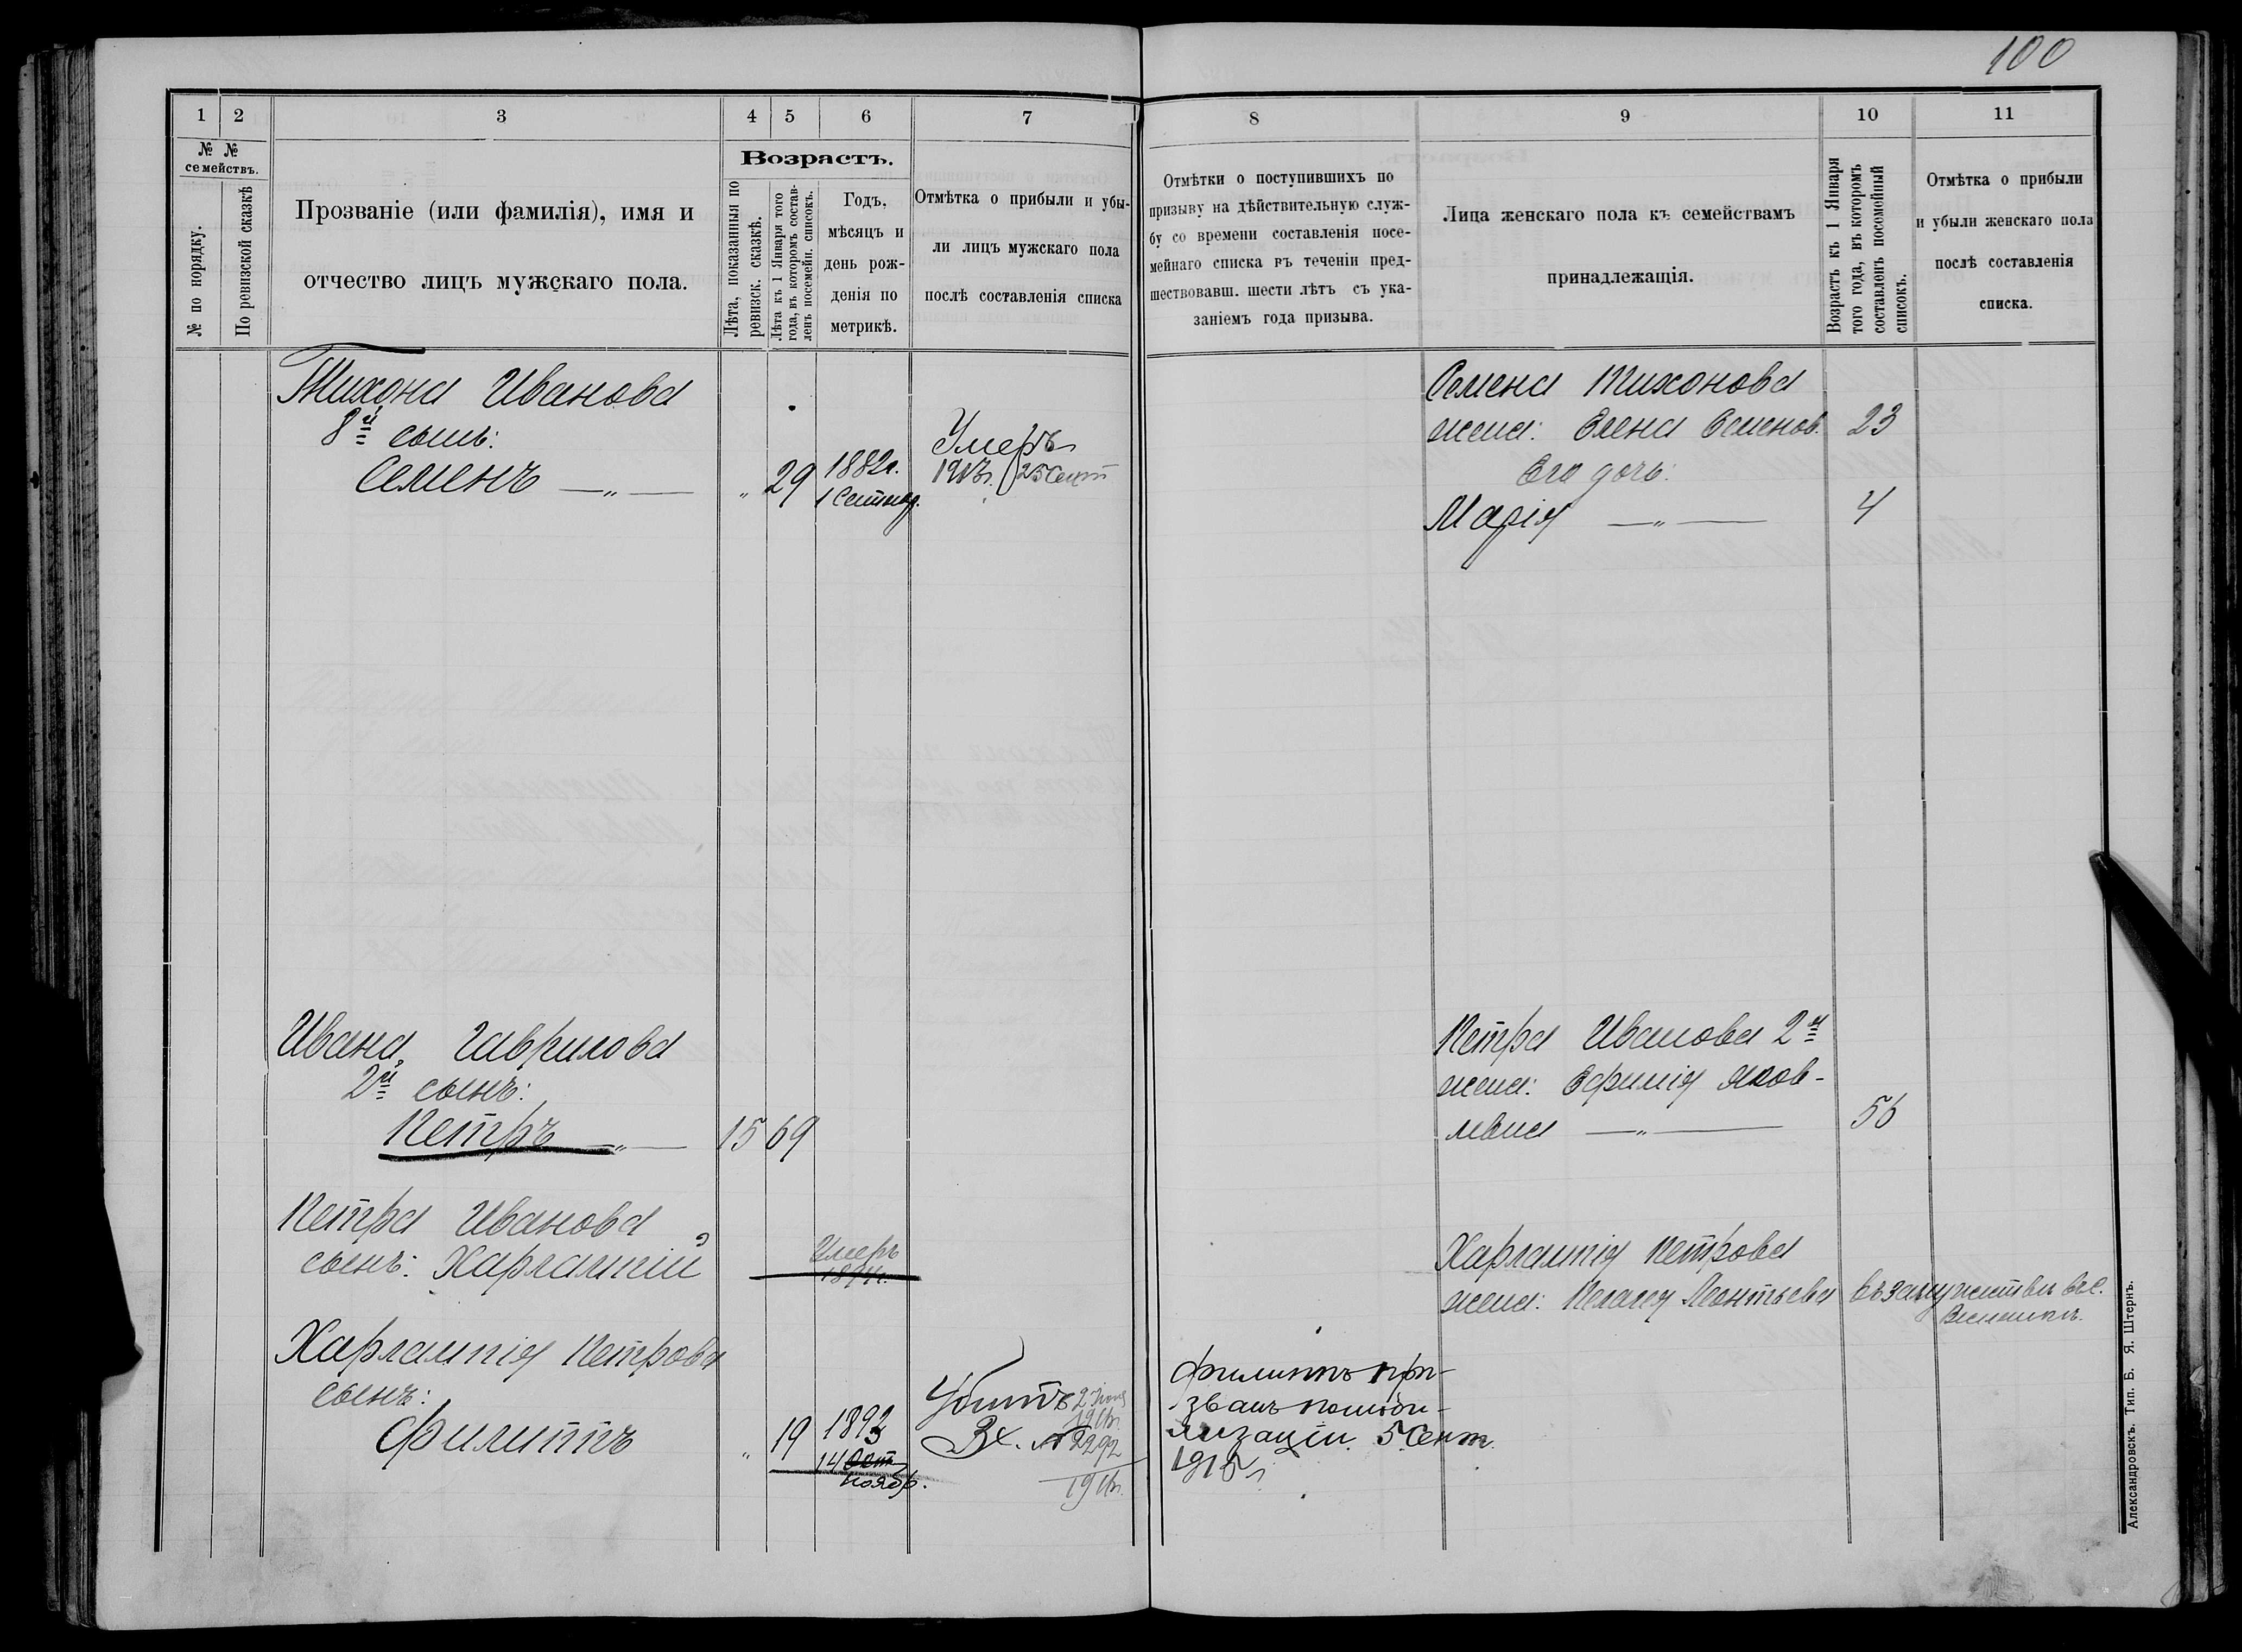 100
1
2
3
4
5
6
7
8
9
10
11
№ №
семействъ.
№ по порядку.
По ревизской сказкѣ
Прозваніе (или фамилія), имя и
отчество лицъ мужскаго пола.
Возрастъ.
Лѣта, показанныя по
ревизск. сказкѣ.
Лѣта къ 1 Января того
года, въ которомъ состав-
ленъ посемейн. списокъ.
Годъ,
мѣсяцъ и
день рож-
денія по
метрикѣ.
Отмѣтка о прибыли и убы-
ли лицъ мужскаго пола
послѣ составленія списка
Отмѣтки о поступившихъ по
призыву на дѣйствительную служ-
бу со времени составленія посе-
мейнаго списка въ теченіи пред-
шествовавш. шести лѣтъ съ ука-
заніемъ года призыва.
Лица женскаго пола къ семействамъ
принадлежащія.
Возрастъ къ 1 Января
того года, въ которомъ
составленъ посемейный
списокъ.
Отмѣтка о прибыли
и убыли женскаго пола
послѣ составленія
списка.
Тихона Иванова
8й сынъ:
Семенъ —„— „ 29 1882г.
1 Сентяб.
Умеръ
25 Сент
Семена Тихонова
жена: Елена Семенов. 23
Его дочь:
Марія —„— 4
Ивана Гаврилова
2й сынъ:
Петръ —„— 15 69
Петра Иванова 2я
жена: Ефимія Яков-
левна —„— 56
Петра Иванова
сынъ: Харлампій
Умеръ
Харлампія Петрова
жена: Пелагея Леонтьева въ замужествѣ въ с.
Харлампія Петрова
сынъ:
Филиппъ „ 19 1893
14 Окт
Нояб.
Убитъ
Вх. № 2292
Филиппъ при-
званъ по моби-
лизаціи 5 Сент.
1915 г.
Александровскъ. Тип. Б. Я. Штернъ.